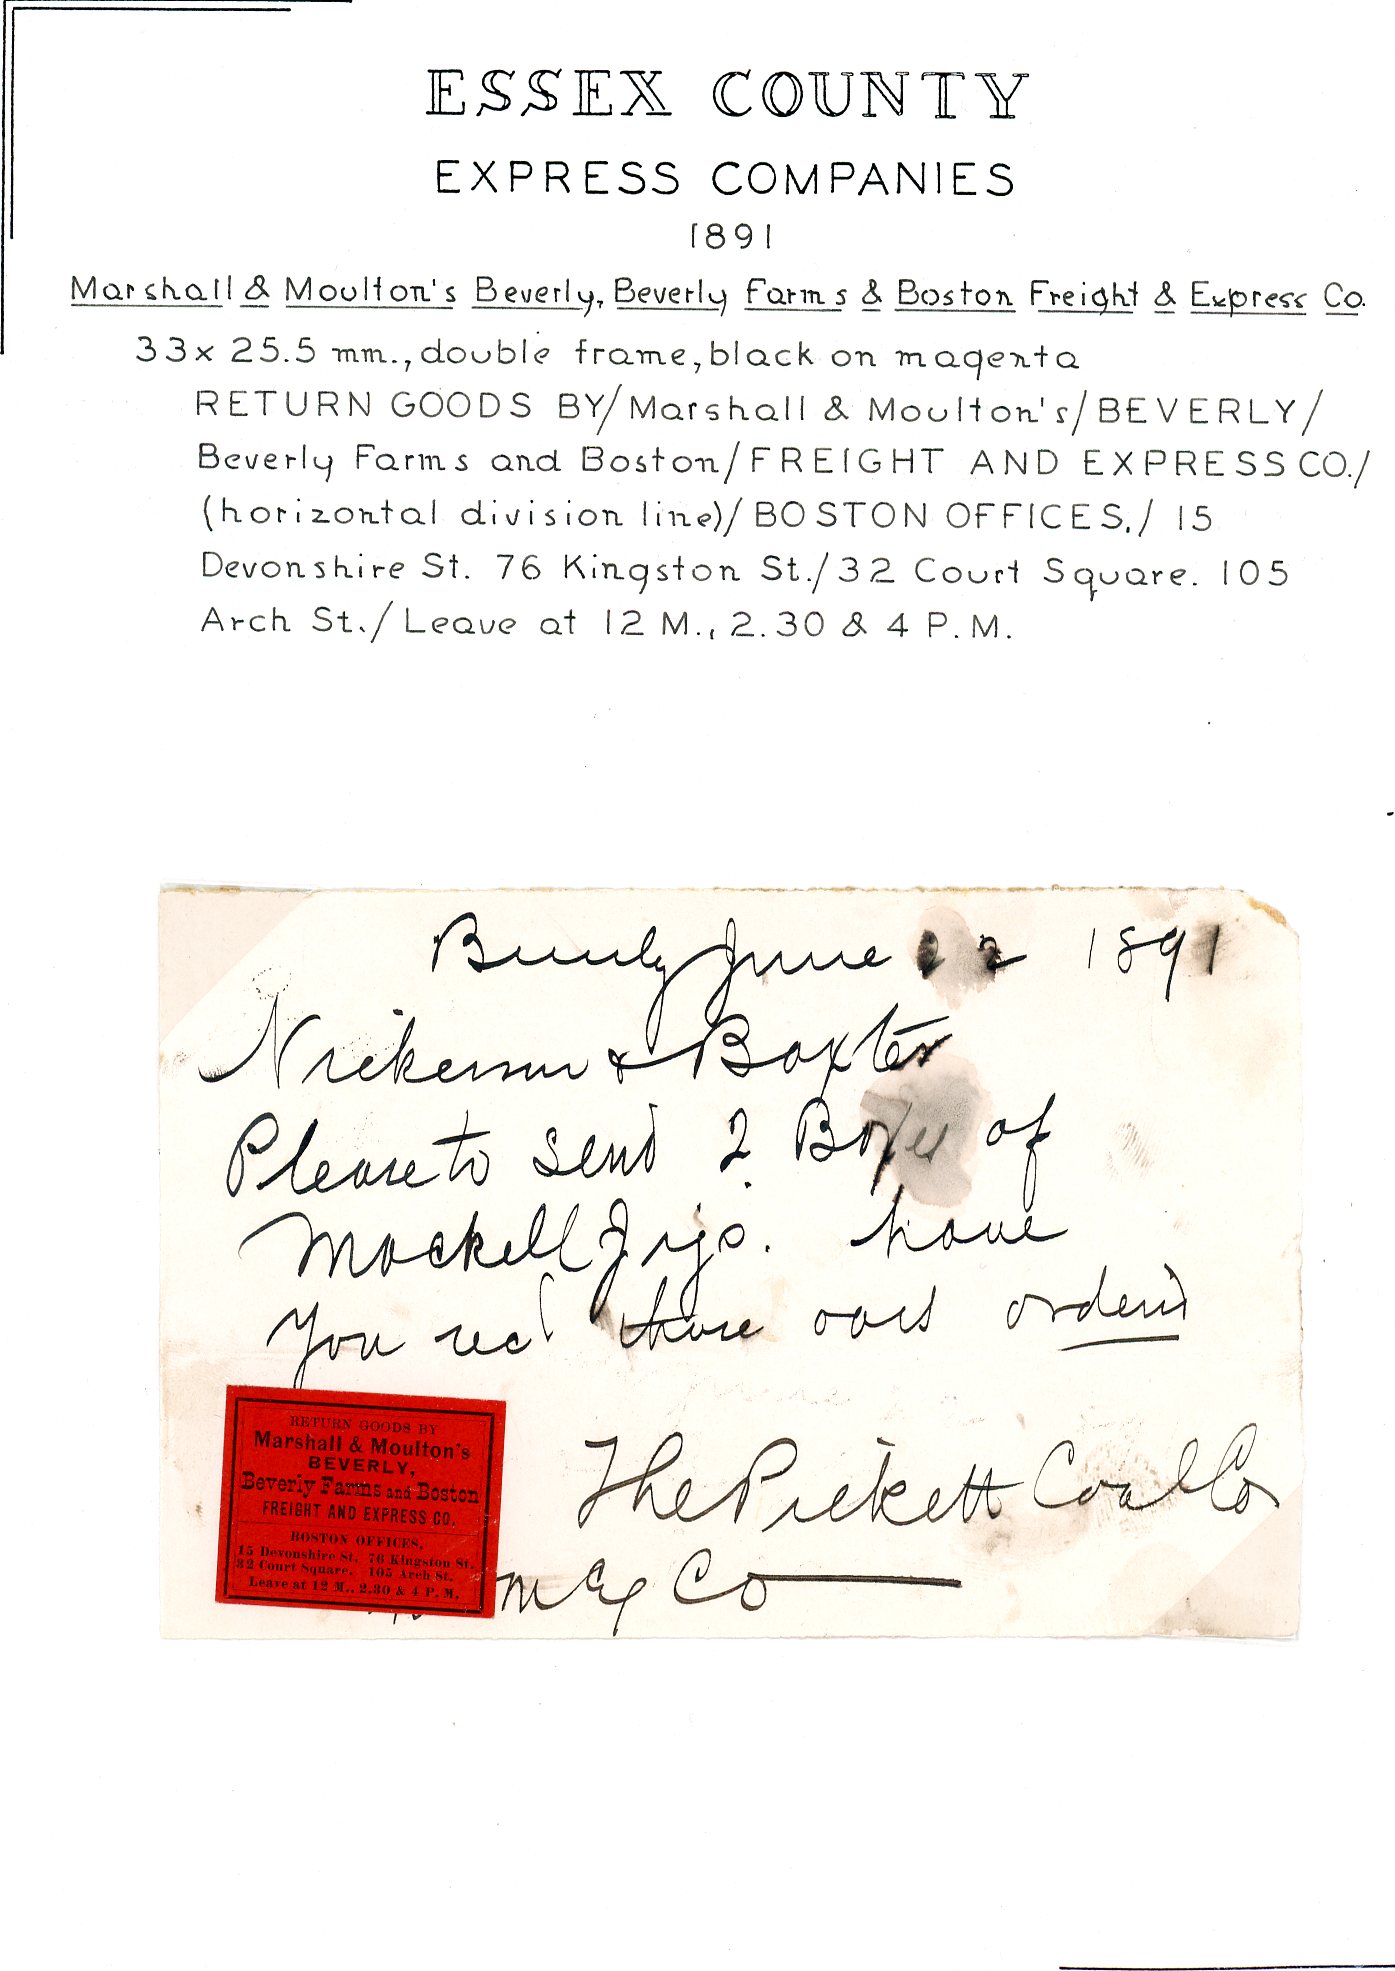 ESSEX COUNTY
EXPRESS COMPANIES
1891
Marshall & Moulton's Beverly, Beverly Farms & Boston Freight & Express Co.
33 x 25.5 mm., double frame, black on magenta
RETURN GOODS BY/Marshall & Moulton's/BEVERLY/
Beverly Farms and Boston/FREIGHT AND EXPRESS CO./
(horizontal division line)/BOSTON OFFICES./ 15
Devonshire St. 76 Kingston St./32 Court Square. 105
Arch St./Leave at 12 M., 2.30 & 4 P.M.
Beverly June 22 1891
Nickerson & Baxter
Please to send 2 Boxes of
Mackell Jigs. have
you recd those oars orderd
The Pickett Coal Co
M Ex Co
RETURN GOODS BY
Marshall & Moulton's
BEVERLY,
Beverly Farms and Boston
FREIGHT AND EXPRESS CO.
BOSTON OFFICES,
15 Devonshire St. 76 Kingston St.
32 Court Square. 105 Arch St.
Leave at 12 M., 2.30 & 4 P. M.